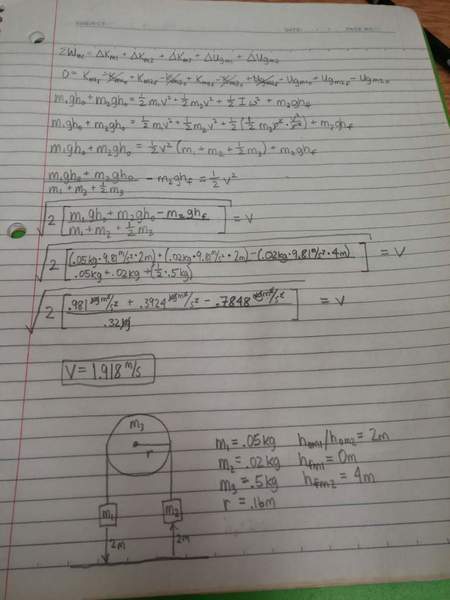 ΣWnc = ΔKm1 + ΔKm2 + ΔKm3 + ΔUgm1 + ΔUgm2
0 = Km1f - Km1o + Km2f - Km2o + Km3f - Km3o + Ugm1f - Ugm1o + Ugm2f - Ugm2o
m₁gh₀ + m₂gh₀ = ½ m₁v² + ½ m₂v² + ½ I ω² + m₂ghf
m₁gh₀ + m₂gh₀ = ½ m₁v² + ½ m₂v² + ½ (½ m₃r² · v²/r²) + m₂ghf
m₁gh₀ + m₂gh₀ = ½ v² (m₁ + m₂ + ½ m₃) + m₂ghf
m₁gh₀ + m₂gh₀ / m₁ + m₂ + ½ m₃ - m₂ghf = ½ v²
√2 [m₁gh₀ + m₂gh₀ - m₂ghf / m₁ + m₂ + ½ m₃] = V
√2 [(.05kg · 9.81 m/s² · 2m) + (.02kg · 9.81 m/s² · 2m) - (.02kg · 9.81 m/s² · 4m) / .05kg + .02kg + (½ · .5kg)] = V
√2 [.981 kg m²/s² + .3924 kg m²/s² - .7848 kg m²/s² / .32kg] = V
V = 1.918 m/s
m₃
r
m₁
m₂
2m
2m
m₁ = .05kg
m₂ = .02kg
m₃ = .5kg
r = .16m
h₀m1/h₀m2 = 2m
hfm1 = 0m
hfm2 = 4m